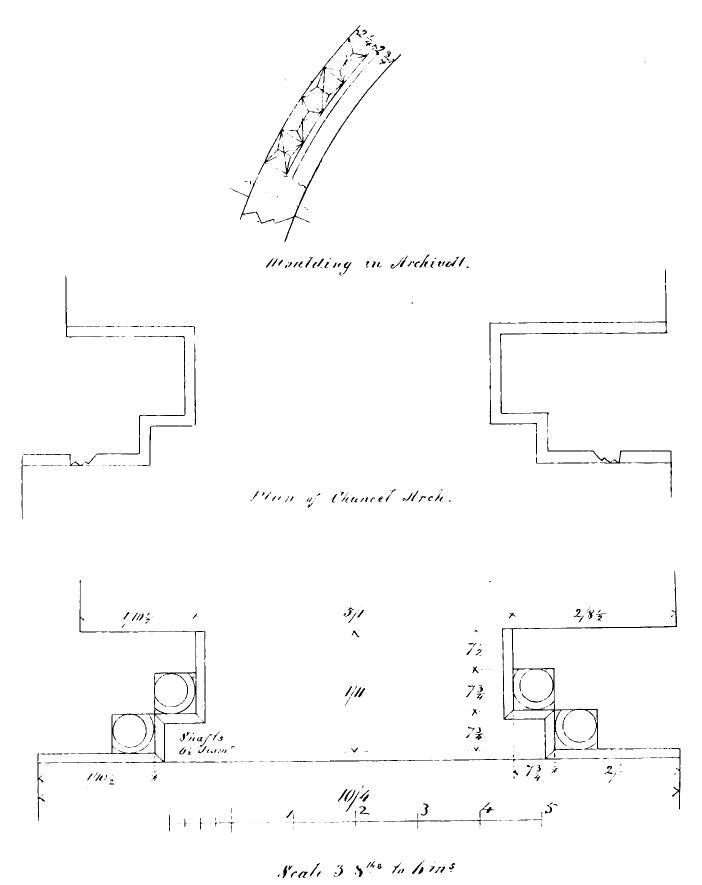 2 1/4 2 3/4
Moulding in Archivolt.
Plan of Chancel Arch.
1/10 1/2 5/1 2/8 1/2
7 1/2
1/11 7 3/4
Shafts 7 3/4
1/10 1/2 7 3/4 2/
10/4
1 2 3 4 5
Scale 3 8ths to